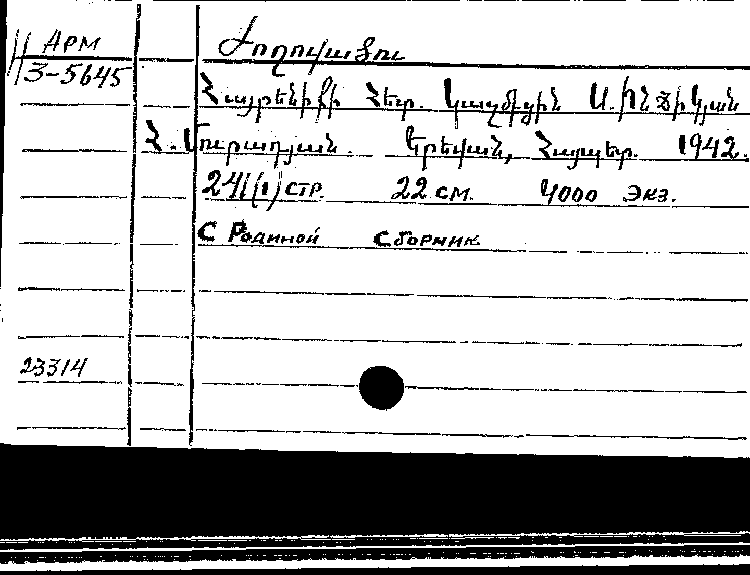 АРМ
3-5645
Ժողովածու
Հայրենիքի Հետ. Կազմեցին Ս. Ինճիկյան
Հ. Մուրադյան. Երեվան, Հայպետ. 1942.
241(1) стр. 22 см. 4000 экз.
С Родиной Сборник
23314